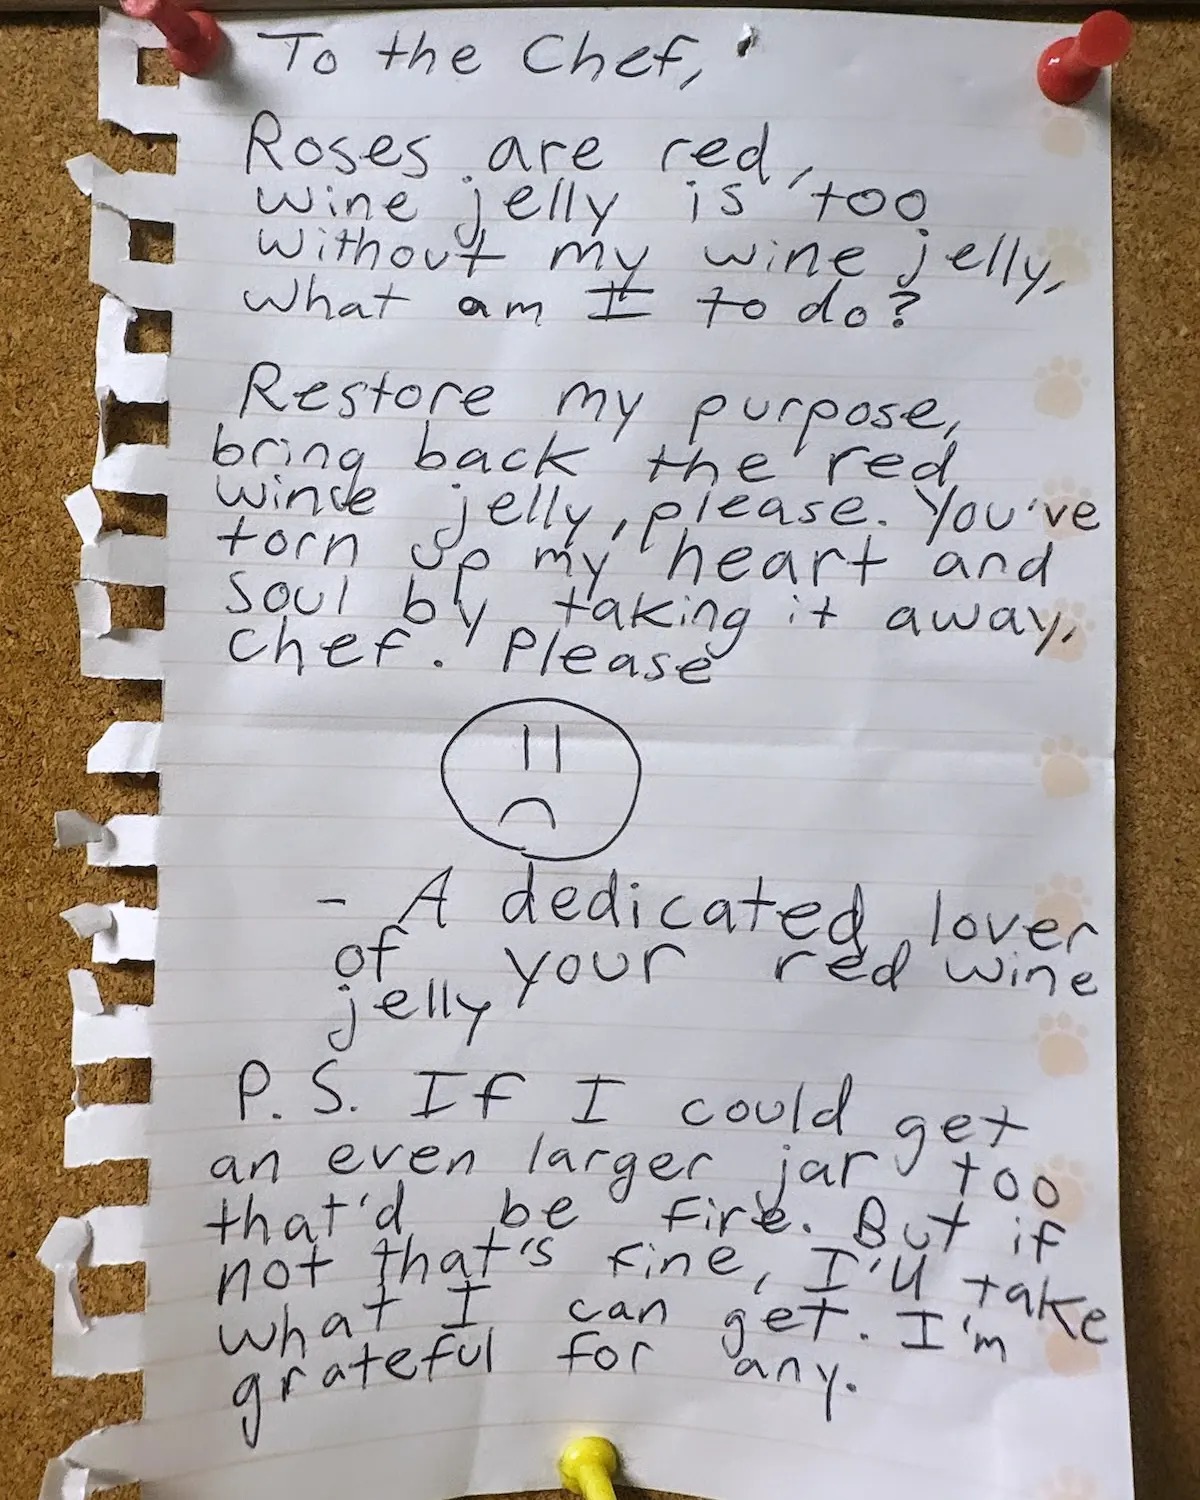 To the Chef,
Roses are red,
wine jelly is too
Without my wine jelly,
what am I to do?
Restore my purpose,
bring back the red
wine jelly, please. You've
torn up my heart and
soul by taking it away,
Chef. Please
- A dedicated lover
of your red wine
jelly
P.S. If I could get
an even larger jar too
that'd be fire. But if
not that's fine, I'll take
what I can get. I'm
grateful for any.